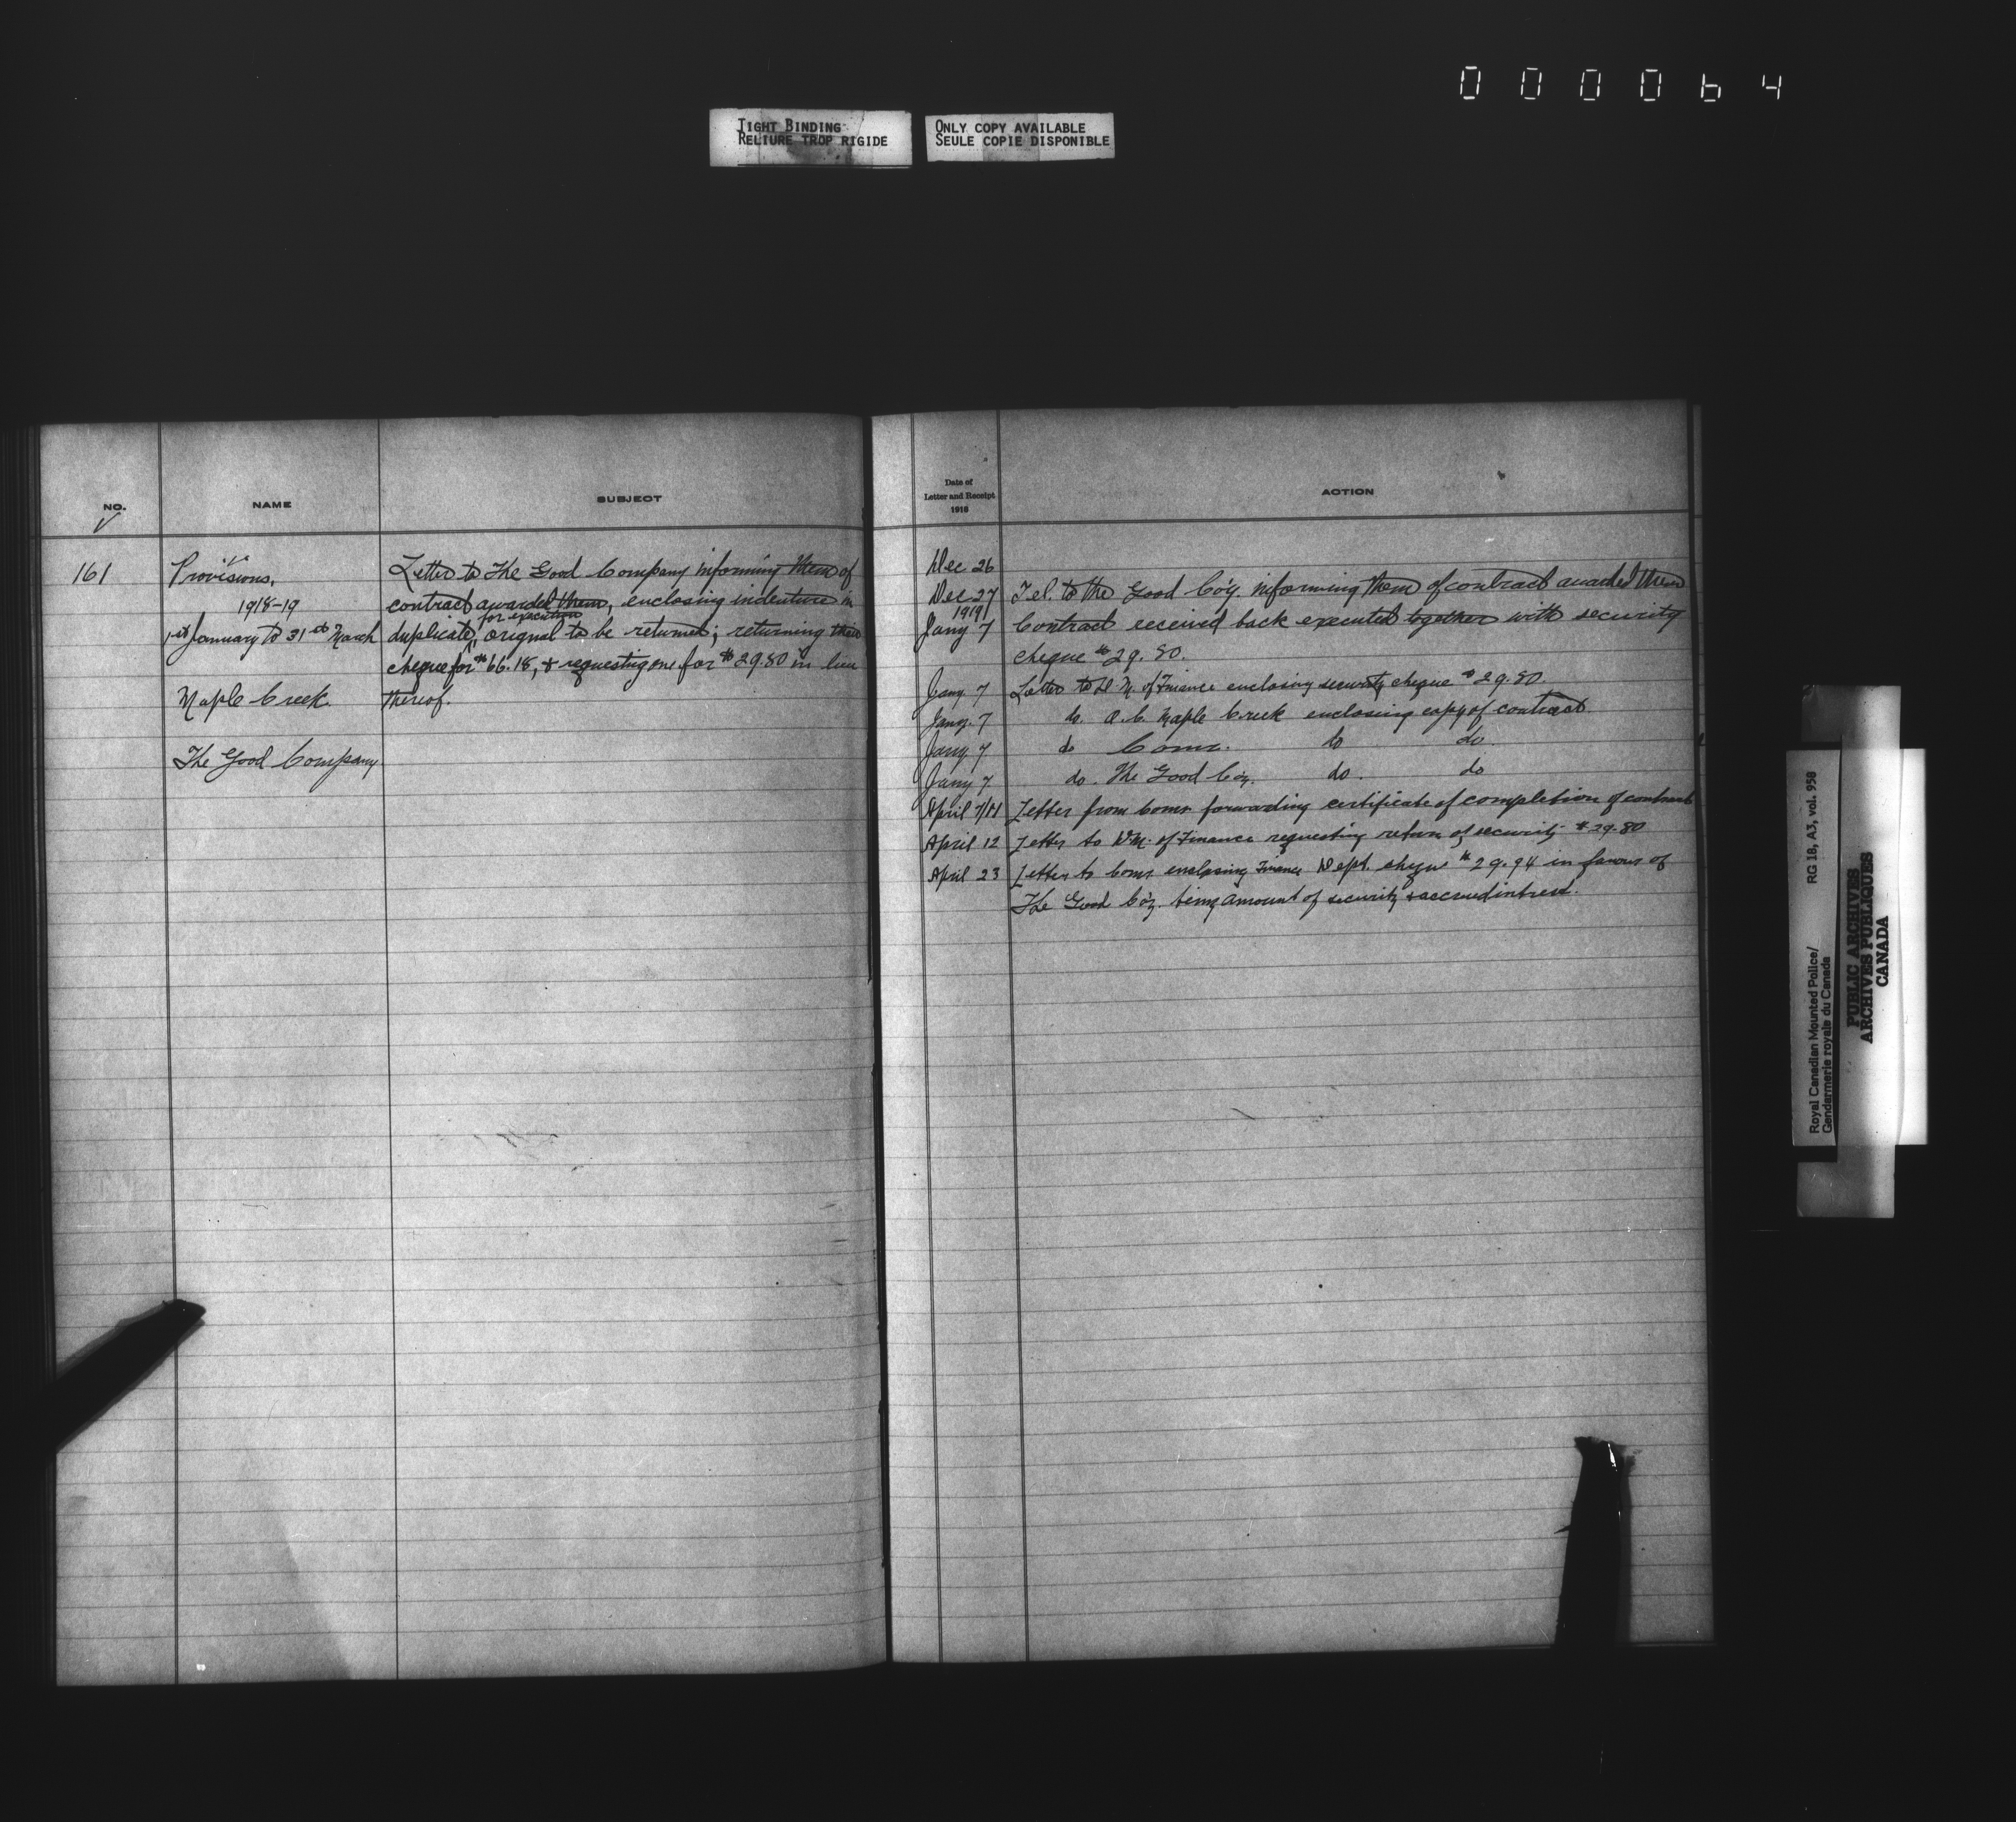 000064
TIGHT BINDING
RELIURE TROP RIGIDE
ONLY COPY AVAILABLE
SEULE COPIE DISPONIBLE
NO.
NAME
SUBJECT
161
Provisions,
1918-19
1st January to 31st March
Maple Creek.
The Good Company
Letter to The Good Company informing them of
contract awarded them, enclosing indenture in
for execution
duplicate, original to be returned; returning their
cheque for $66.18, & requesting one for $29.80 in lieu
thereof.
Date of
Letter and Receipt
1918
ACTION
Dec 26
Dec 27 Tel. to the Good Co'y. informing them of contract awarded them
1919
Jany 7 Contract received back executed together with security
cheque $29.80.
Jany 7 Letter to D. M. of Finance enclosing security cheque $29.80.
Jany. 7 do. O.C. Maple Creek enclosing copy of contract
Jany 7 do Comr. do do
Jany 7 do. The Good Co'y. do. do
April 7/11 Letter from Comr. forwarding certificate of completion of contract
April 12 Letter to D.M. of Finance requesting return of security $29.80
April 23 Letter to Comr. enclosing Finance Dept. cheque $29.94 in favour of
The Good Co'y. being amount of security & accrued interest.
Royal Canadian Mounted Police/
Gendarmerie royale du Canada
RG 18, A3, vol. 958
PUBLIC ARCHIVES
ARCHIVES PUBLIQUES
CANADA